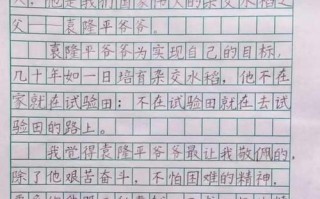 人,他是我们国家伟大的杂交水稻之
父——袁隆平爷爷。
袁隆平爷爷为实现自己的目标,
几十年如一日培育杂交水稻,他不在
家就在试验田;不在试验田就在去试
验田的路上。
我觉得袁隆平爷爷最让我敬佩的,
除了他艰苦奋斗,不怕困难的精神,